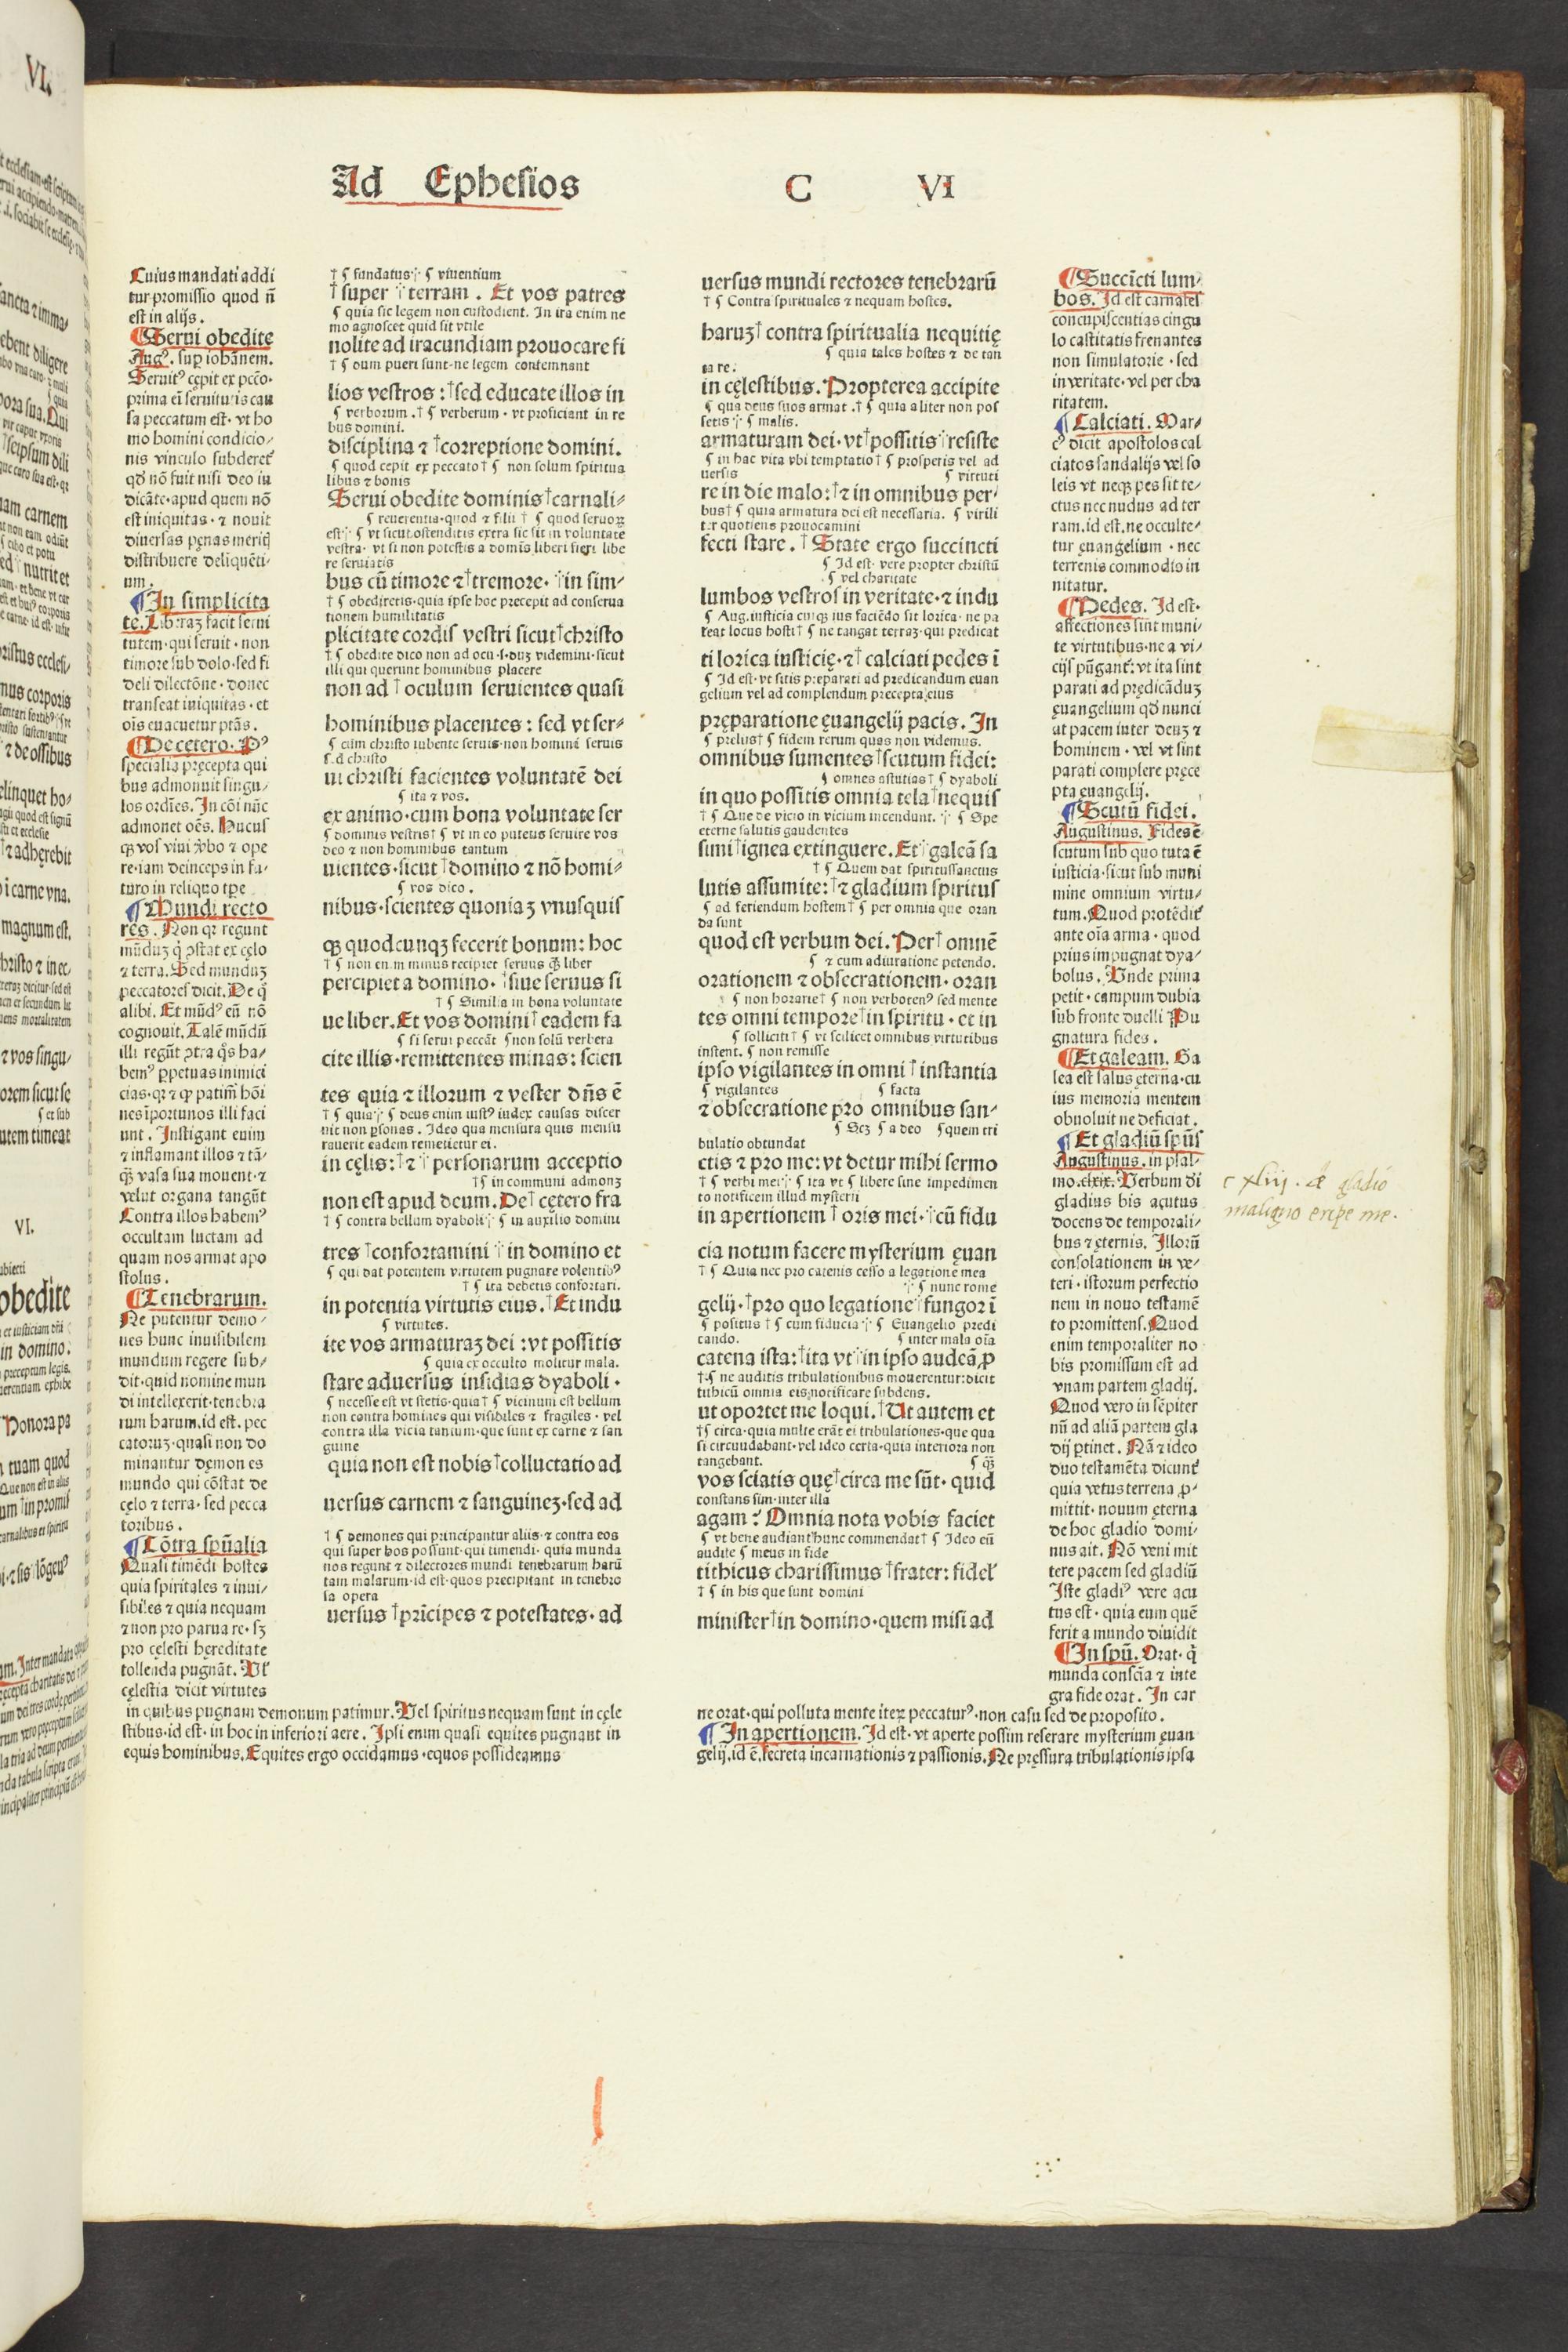 Ad Ephesios C VI
Cuius mandati addi
tur promissio quod ñ
est in alijs.
¶Serui obedite
Augꝰ. sup iohãnem.
Seruitꝰ cępit ex pc̃co.
prima eĩ seruitutis cau
sa peccatum est. vt ho
mo homini condicio⸗
nis vinculo subderet᷑
qđ nõ fuit nisi deo iu
dicãte.apud quem nõ
est iniquitas. ⁊ nouit
diuersas pęnas meritꝭ
distribuere deliquẽti⸗
um.
¶In simplicita
te. Liberaꝫ facit serui
tutem.qui seruit. non
timore sub dolo.sed fi
deli dilectõne. donec
transeat iniquitas. et
oĩs euacuetur ptãs.
¶De cetero. Pꝰ
specialia pręcepta qui
bus admonuit singu⸗
los ordĩes. In cõi nũc
admonet oẽs. Hucus
qꝫ vos viui ꝟbo ⁊ ope
re.iam deinceps in fu⸗
turo in reliquo tp̃e
¶Mundi recto
res. Non qꝛ regunt
mũduꝫ q̃ ꝯstat ex cęlo
⁊ terra. Sed munduꝫ
peccatores dicit. De q̃
alibi. Et mũdꝰ eũ nõ
cognouit. Talẽ mũdũ
illi regũt ꝯtra q̃s ha⸗
bemꝰ ꝑpetuas inimici
cias. qꝛ ⁊ qꝫ patim̃ hõi
nes ĩportunos illi faci
unt. Instigant enim
⁊ inflamant illos ⁊ tã⸗
q̃ꝫ vasa sua mouent.⁊
velut organa tangũt
Contra illos habemꝰ
occultam luctam ad
quam nos armat apo
stolus.
¶Tenebrarum.
Ne putentur demo⸗
nes hunc inuisibilem
mundum regere sub⸗
dit.quid nomine mun
di intellexerit.tenebra
rum harum.id est. pec
catoruꝫ.quasi non do
minantur dęmones
mundo qui cõstat de
cęlo ⁊ terra. sed pecca
toribus.
¶Cõtra spũalia
Quasi timẽdi hostes
quia spiritales ⁊ inui⸗
sibiles ⁊ quia nequam
⁊ non pro parua re. sꝫ
pro cęlesti hęreditate
tollenda pugnãt. Vl᷑
cęlestia dicit virtutes
in quibus pugnam demonum patimur. Vel spiritus nequam sunt in cęle
stibus.id est. in hoc in inferiori aere. Ipsi enim quasi equites pugnant in
equis hominibus. Equites ergo occidamus.equos possideamus
† ¶ fundatus∴ ¶ viuentium
†super ⸪terram. Et vos patres
¶ quia sic legem non custodient. In ira enim ne
mo agnoscet quid sit vtile
nolite ad iracundiam prouocare fi
† ¶ dum pueri sunt.ne legem contemnant
lios vestros : †sed educate illos in
¶ verborum.† ¶ verberum. vt proficiant in re
bus domini.
disciplina ⁊ †correptione domini.
¶ quod cepit ex peccato† ¶ non solum spiritua
libus ⁊ bonis
Serui obedite dominis†carnali⸗
¶ reuerentia.quod ⁊ filii † ¶ quod seruoꝝ
est∴ ¶ vt sicut.ostenditis extra sic sit in voluntate
vestra. vt si non potestis a domis liberi fieri libe
re seruiatis
bus cũ timore ⁊†tremore. ⸪in sim⸗
† ¶ obedietis.quia ipse hoc precepit ad conserua
tionem humilitatis
plicitate cordis vestri sicut†christo
† ¶ obedite dico non ad ocu.s.duꝫ videmini.sicut
illi qui querunt hominibus placere
non ad †oculum seruientes quasi
hominibus placentes : sed vt ser⸗
¶ cum christo iubente seruis.non homini seruis
s.d christo
ui christi facientes voluntatẽ dei
¶ ita ⁊ vos.
ex animo.cum bona voluntate ser
¶ dominis vestris† ¶ vt in eo putetis seruire vos
deo ⁊ non hominibus tantum
uientes.sicut †domino ⁊ nõ homi⸗
¶ vos dico.
nibus.scientes quoniaꝫ vnusquis
qꝫ quodcunqꝫ fecerit bonum: hoc
† ¶ non enim minus recipiet seruus q̃ꝫ liber
percipiet a domino. †siue seruus si
† ¶ Similia in bona voluntate
ue liber. Et vos domini†eadem fa
¶ si serui peccãt ¶non solũ verbera
cite illis.remittentes minas: scien
tes quia ⁊ illorum ⁊ vester dñs ẽ
† ¶ quia∴ ¶ deus enim iustꝰ iudex causas discer
nit non ꝑsonas. Ideo qua mensura quis mensu
rauerit eadem remetietur ei.
in cęlis:†⁊ ⸪ personarum acceptio
†¶ in communi admonꝫ
non est apud deum. De†cętero fra
† ¶ contra bellum dyaboli∴ ¶ in auxilio domini
tres †confortamini ⸪in domino et
¶ qui dat potentem virtutem pugnare volentibꝰ
† ¶ ita debetis confortari.
in potentia virtutis eius.†Et indu
¶ virtutes.
ite vos armaturaꝫ dei :vt possitis
¶ quia ex occulto molitur mala.
stare aduersus insidias dyaboli .
¶ necesse est vt stetis.quia† ¶ vicinum est bellum
non contra homines qui visibiles ⁊ fragiles. vel
contra illa vicia tantum.que sunt ex carne ⁊ san
guine
quia non est nobis†colluctatio ad
uersus carnem ⁊ sanguineꝫ.sed ad
† ¶ demones qui principantur aliis.⁊ contra eos
qui super hos possunt.qui timendi. quia munda
nos regunt ⁊ dilectores mundi tenebrarum harũ
tam malarum.id est.quos precipitant in tenebro
sa opera
uersus †prĩcipes ⁊ potestates.ad
uersus mundi rectores tenebrarũ
† ¶ Contra spirituales ⁊ nequam hostes.
haruꝫ†contra spiritualia nequitię
¶ quia tales hostes ⁊ de tan
ta re.
in cęlestibus. Propterea accipite
¶ qua deus suos armat.† ¶ quia aliter non pos
setis∴ ¶ malis.
armaturam dei.vt†possitis⸪resiste
¶ in hac vita vbi temptatio† ¶ prosperis vel ad
uersis ¶ virtuti
re in die malo:†⁊ in omnibus per⸗
bus† ¶ quia armatura dei est necessaria. ¶ virili
ter quotiens prouocamini
fecti stare. †State ergo succincti
¶ Id est. vere propter christũ
¶ vel charitate
lumbos vestros in veritate.⁊ indu
¶ Aug.iusticia cuiqꝫ ius faciẽdo sit lorica. ne pa
teat locus hosti† ¶ ne tangat terraꝫ.qui predicat
ti lorica iusticię.⁊†calciati pedes ĩ
¶ Id est.vt sitis preparati ad predicandum euan
gelium vel ad complendum precepta eius
pręparatione ęuangelij pacis. In
¶ prelus† ¶ fidem rerum quas non videmus.
omnibus sumentes†scutum fidei:
¶ omnes astutias† ¶ dyaboli
in quo possitis omnia tela†nequis
† ¶ Que de vicio in vicium incendunt. ∴ ¶ Spe
eterne salutis gaudentes
simi†ignea extinguere. Et⸪galeã sa
† ¶ Quem dat spiritussanctus
lutis assumite:†⁊ gladium spiritus
¶ ad feriendum hostem† ¶ per omnia que oran
da sunt
quod est verbum dei. Per†omnẽ
¶ ⁊ cum adiuratione petendo.
orationem ⁊ obsecrationem. oran
¶ non horarie† ¶ non verbotenꝰ sed mente
tes omni tempore†in spiritu. et in
¶ solliciti† ¶ vt scilicet omnibus virtutibus
instent. ¶ non remisse
ipso vigilantes in omni †instantia
¶ vigilantes ¶ facta
⁊ obsecratione pro omnibus san⸗
¶ Scꝫ ¶ a deo ¶quem tri
bulatio obtundat
ctis ⁊ pro me: vt detur mihi sermo
† ¶ verbi mei∴ ¶ ita vt ¶ libere sine impedimen
to notificem illud mysterii
in apertionem †oris mei.⸪cũ fidu
cia notum facere mysterium ęuan
† ¶ Quia nec pro catenis cesso a legatione mea
∴ ¶ nunc rome
gelij.†pro quo legatione⸪fungor ĩ
¶ positus † ¶ cum fiducia∴ ¶ Euangelio predi
cando. ¶ inter mala oĩa
catena ista:†ita vt⸪in ipso audeã,ꝓ
†.¶ ne auditis tribulationibus mouerentur:dicit
tithicũ omnia eis notificare subdens.
ut oportet me loqui.†Ut autem et
†¶ circa.quia multe erãt ei tribulationes.que qua
si circuudabant.vel ideo certa.quia interiora non
tangebant. ¶ q̃ꝫ
vos sciatis quę†circa me sũt. quid
constans sim.inter illa
agam : Omnia nota vobis faciet
¶ vt bene audiant hunc commendat† ¶ Ideo eũ
audite ¶ meus in fide
tithicus charissimus †frater: fidel᷑
† ¶ in his que sunt domini
minister†in domino.quem misi ad
¶Succĩcti lum⸗
bos. Id est carnales
concupiscentias cingu
lo castitatis frenantes
non simulatorie. sed
in veritate.vel per cha
ritatem.
¶Calciati. Mar⸗
cꝰ dicit apostolos cal
ciatos sandalijs vel so
leis vt neqꝫ pes sit te⸗
ctus nec nudus ad ter
ram.id est.ne occulte⸗
tur ęuangelium. nec
terrenis commodis in
nitatur.
¶Pedes. Id est.
affectiones sint muni⸗
te virtutibus.ne a vi⸗
cijs pũgant᷑:vt ita sint
parati ad prędicãduꝫ
ęuangelium qđ nunci
at pacem inter deuꝫ ⁊
hominem. vel vt sint
parati complere pręce
pta ęuangelij.
¶Scutũ fidei.
Augustinus. Fides ẽ
scutum sub quo tuta ẽ
iusticia.sicut sub muni
mine omnium virtu⸗
tum. Quod protẽdit᷑
ante oĩa arma. quod
prius impugnat dya⸗
bolus. Unde prima
petit. campum dubia
sub fronte duelli Pu
gnatura fides.
¶Et galeam. Ga
lea est salus ęterna.cu
ius memoria mentem
obuoluit ne deficiat.
¶Et gladiũ spũs
Augustinus. in psal⸗
mo.clxix. Verbum di
gladius bis acutus
docens de temporali⸗
bus ⁊ ęternis. Illorũ
consolationem in ve⸗
teri. istorum perfectio
nem in nouo testamẽ
to promittens. Quod
enim temporaliter no
bis promissum est ad
vnam partem gladij.
Quod vero in sẽpiter
nũ ad aliã partem gla
dij ꝑtinet. Nã ⁊ ideo
duo testamẽta dicunt᷑
quia vetus terrena ꝓ⸗
mittit. nouum ęterna
de hoc gladio domi⸗
nus ait. Nõ veni mit
tere pacem sed gladiũ
Iste gladiꝰ vere acu
tus est. quia eum quẽ
ferit a mundo diuidit
¶In spũ. Orat. q̃
munda consc̃ia ⁊ inte
gra fide orat. In car
ne orat.qui polluta mente iteꝝ peccaturꝰ.non casu sed de proposito.
¶In apertionem. Id est.vt aperte possim reserare mysterium ęuan
gelij.id ẽ.secreta incarnationis ⁊ passionis. Ne pręssura tribulationis ipsa
c xliij. de gladio
maligno eripe me.